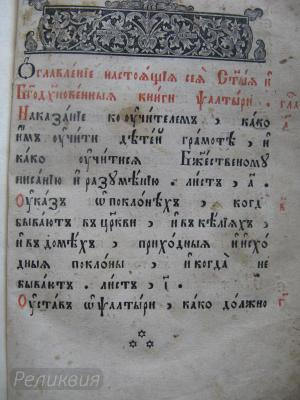 Ѻглавленїе настоѧщїѧ сеѧ Ст҃ыѧ и҆
Бг҃одх҃новенныѧ книги ѱалтыри.
Наказанїе ко ᲂу҆чителемъ, како
и҆мъ ᲂу҆чити дѣтей грамотѣ, и҆
како ᲂу҆читисѧ Бж҃ественому
писанїю и҆ разумѣнїю. листъ, а҃.
Оуказъ ѡ҆ поклонѣхъ, когда̀
бываютъ въ цр҃кви, и҆ въ кѣлїѧхъ
и҆ въ домѣхъ, приходныѧ и҆ и҆схо
дныѧ поклоны, и҆ когда не
бываютъ. листъ, і҃.
Оуставъ ѡ҆ ѱалтыри, како должно
Реликвия